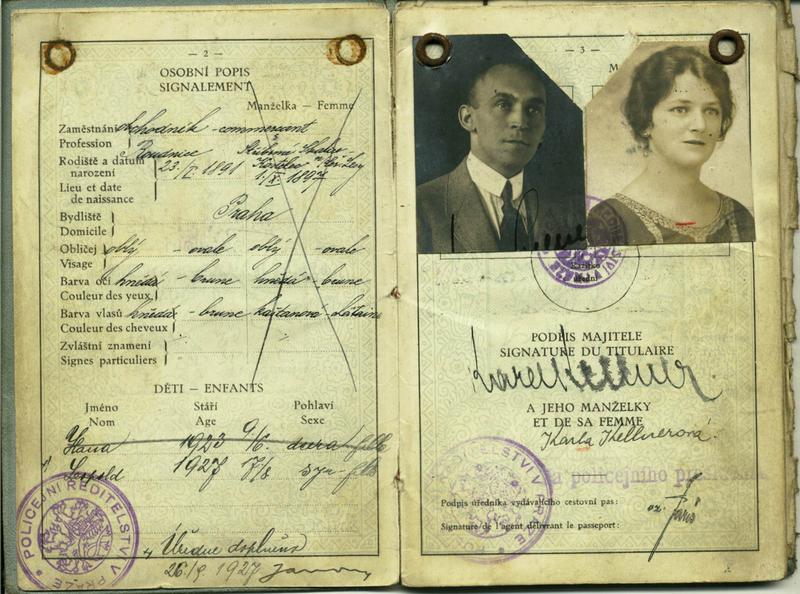 — 2 —
OSOBNÍ POPIS
SIGNALEMENT
Manželka — Femme
Zaměstnání obchodník - commerçant
Profession
Rodiště a datum narození Roudnice
23/I. 1891 1/X. 1897
Lieu et date de naissance
Bydliště Praha
Domicile
Obličej oblý - ovale oblý - ovale
Visage
Barva očí hnědé - brune hnědá - brune
Couleur des yeux
Barva vlasů hnědá - brune kaštanová - châtaine
Couleur des cheveux
Zvláštní znamení
Signes particuliers
DĚTI — ENFANTS
Jméno Stáří Pohlaví
Nom Age Sexe
Hana 1923 9/6. dcera - fille
Leopold 1927 7/8 syn - fils
POLICEJNÍ ŘEDITELSTVÍ V PRAZE
Úředně doplněno
26/9. 1927
— 3 —
PODPIS MAJITELE
SIGNATURE DU TITULAIRE
Karel Kellner
A JEHO MANŽELKY
ET DE SA FEMME
Karla Kellnerová
policejního
Podpis úředníka vydávajícího cestovní pas:
Signature de l'agent délivrant le passeport: